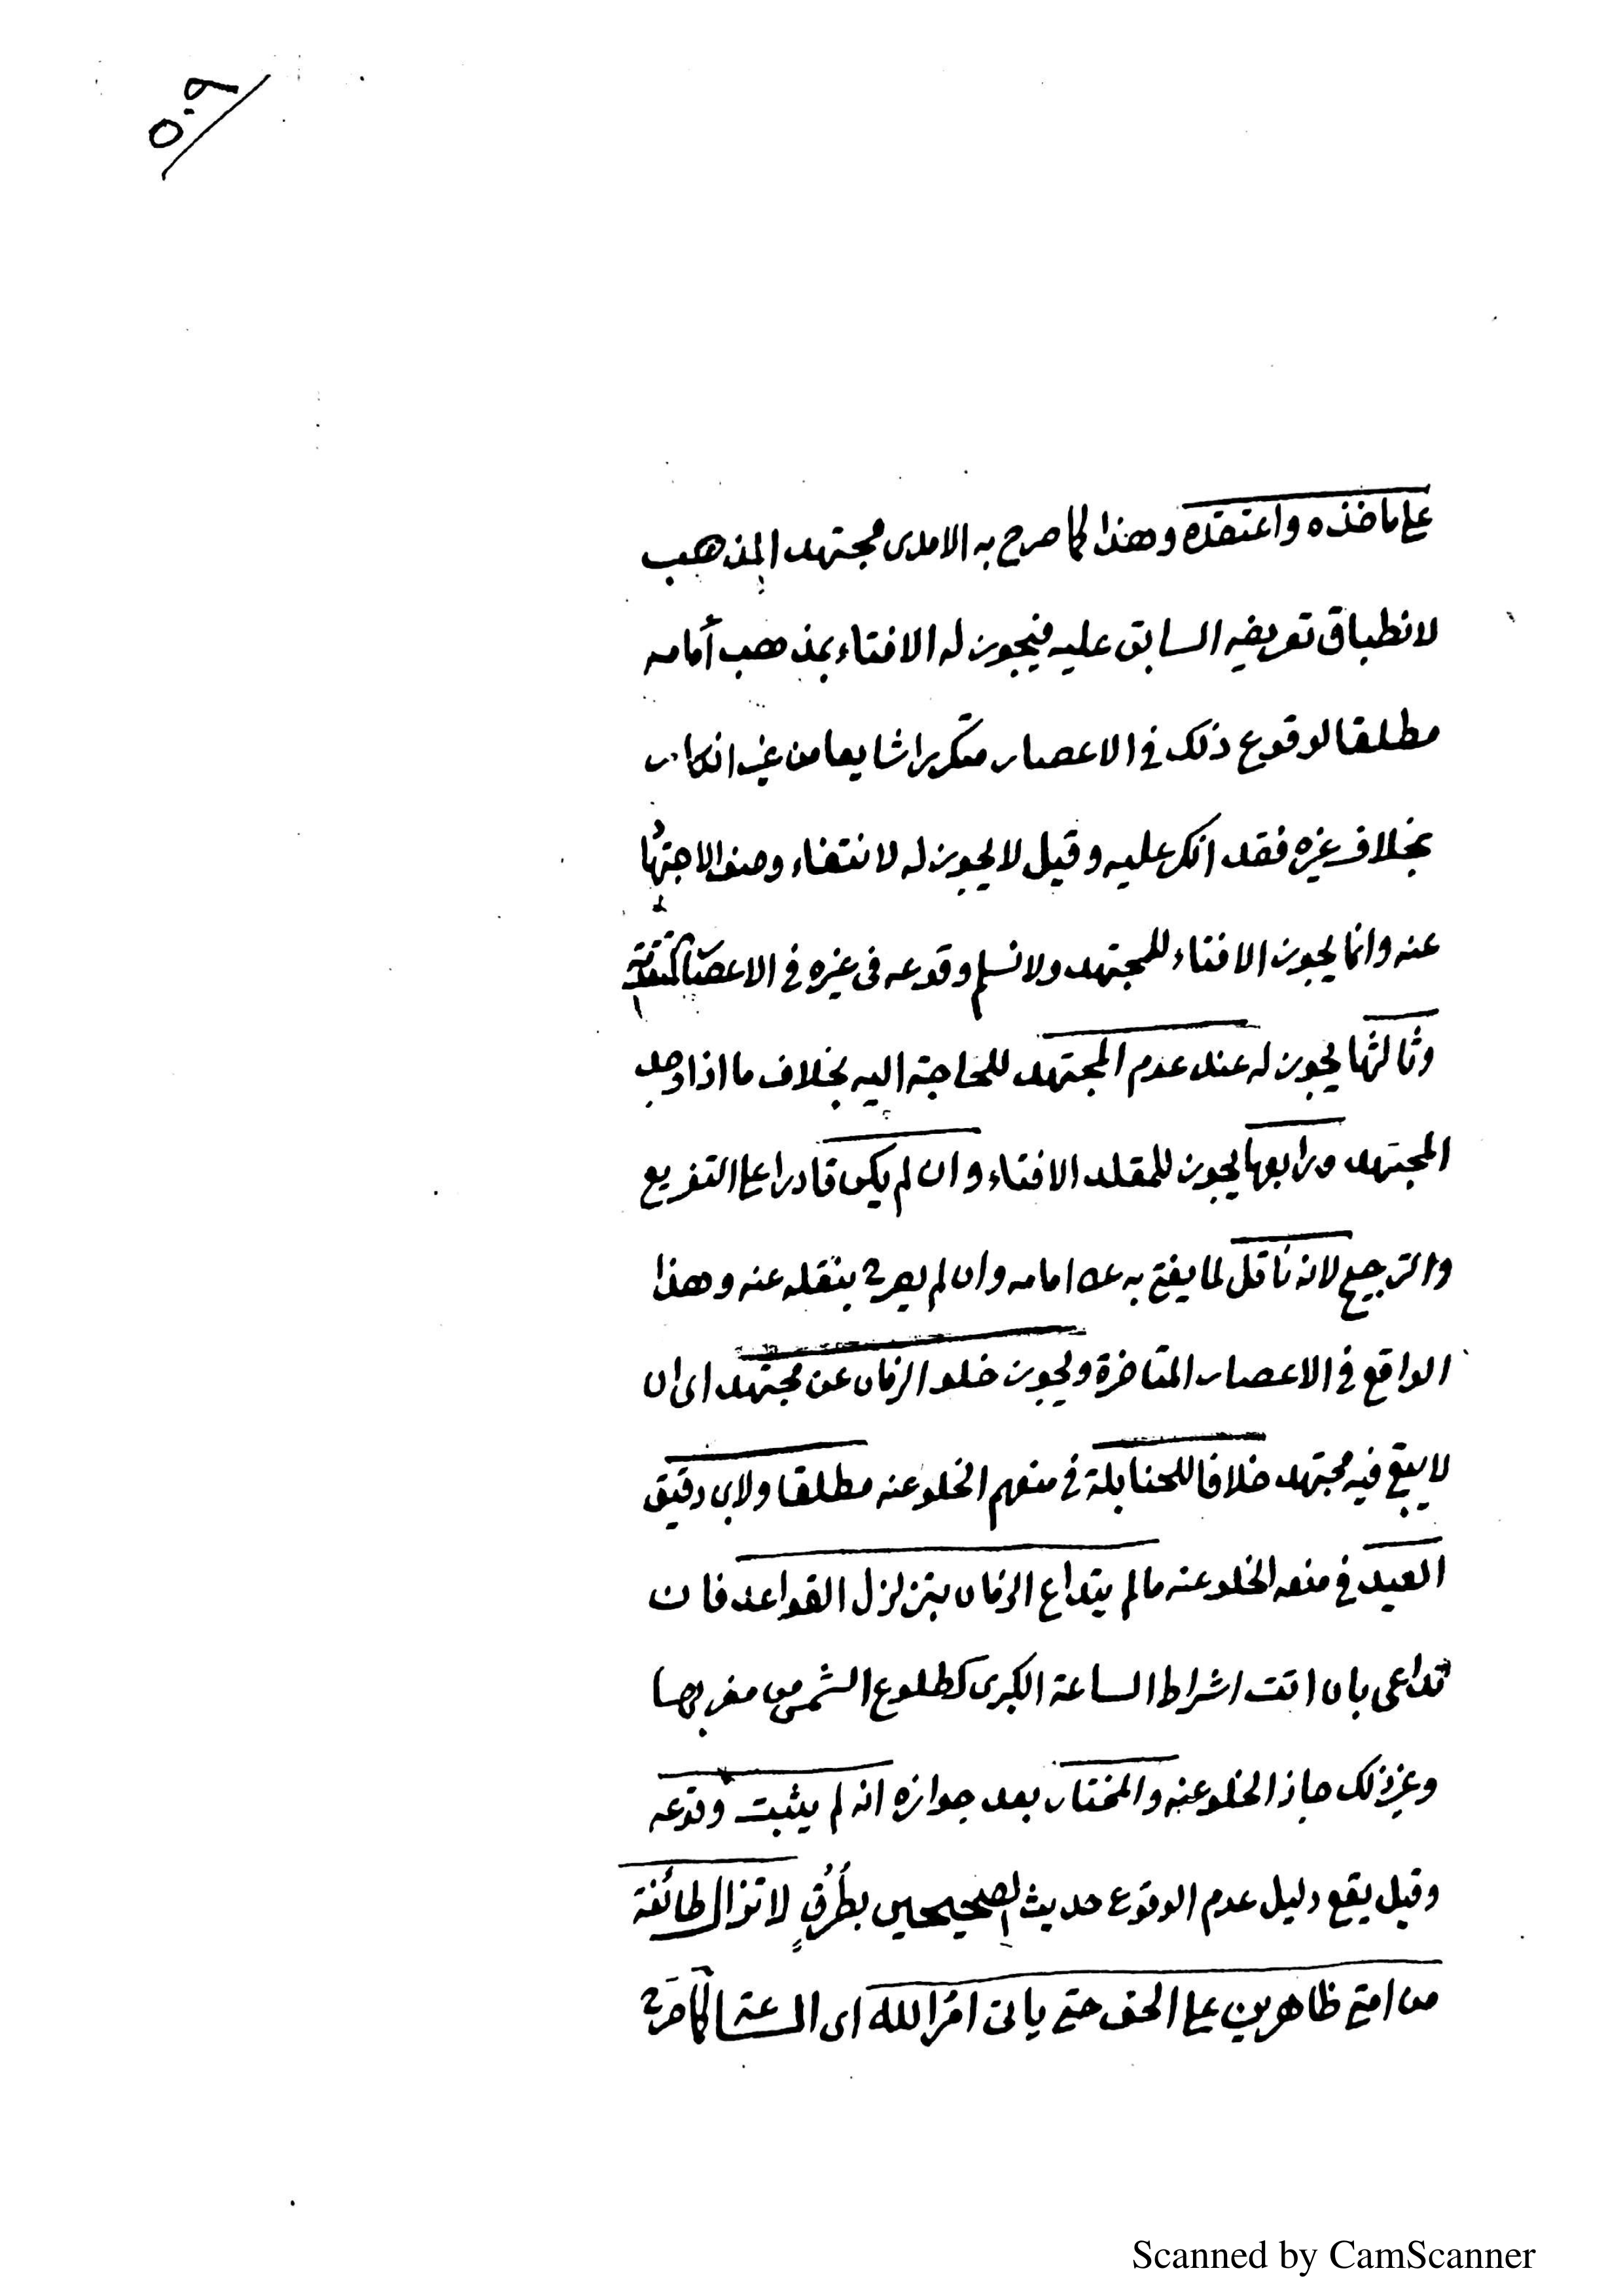 ٥٠٩
على ماخذه واعتقده وهذا كما صرح به الامدى مجتهد المذهب
لانطباق تعريفه السابق عليه فيجوز له الافتاء بمذهب أمامه
مطلقا لوقوع ذلك في الاعصار متكررا شايعا من غير انكار
بخلاف غيره فقد انكر عليه وقيل لا يجوز له لانتفاء وصف الاجتهاد
عنه وانما يجوز الافتاء للمجتهد ولا نسلم وقوعه فى غيره في الاعصار المتقدمة
وثالثها يجوز له عند عدم المجتهد للحاجة اليه بخلاف ما اذا وجد
المجتهد ورابعها يجوز للمقلد الافتاء وان لم يكن قادرا على التفريع
والترجيح لانه ناقل لما يفتى به عن امامه وان لم يصرح بنقله عنه وهذا
الواقع في الاعصار المتاخرة ويجوز خلو الزمان عن مجتهد اى ان
لا يبقى فيه مجتهد خلافا للحنابلة في منعهم الخلو عنه مطلقا ولابن دقيق
العيد في منعه الخلو عنه ما لم يتداع الزمان بتزلزل القواعد فان
تداعى بان اتت اشراط الساعة الكبرى كطلوع الشمس من مغربها
وغير ذلك جاز الخلو عنه والمختار بعد جوازه انه لم يثبت وقوعه
وقيل يقع دليل عدم الوقوع حديث الصحيحين بطُرُقٍ لا تزال طائفة
من امتى ظاهرين على الحق حتى ياتى امرُ الله اى الساعة كما صَرح
Scanned by CamScanner